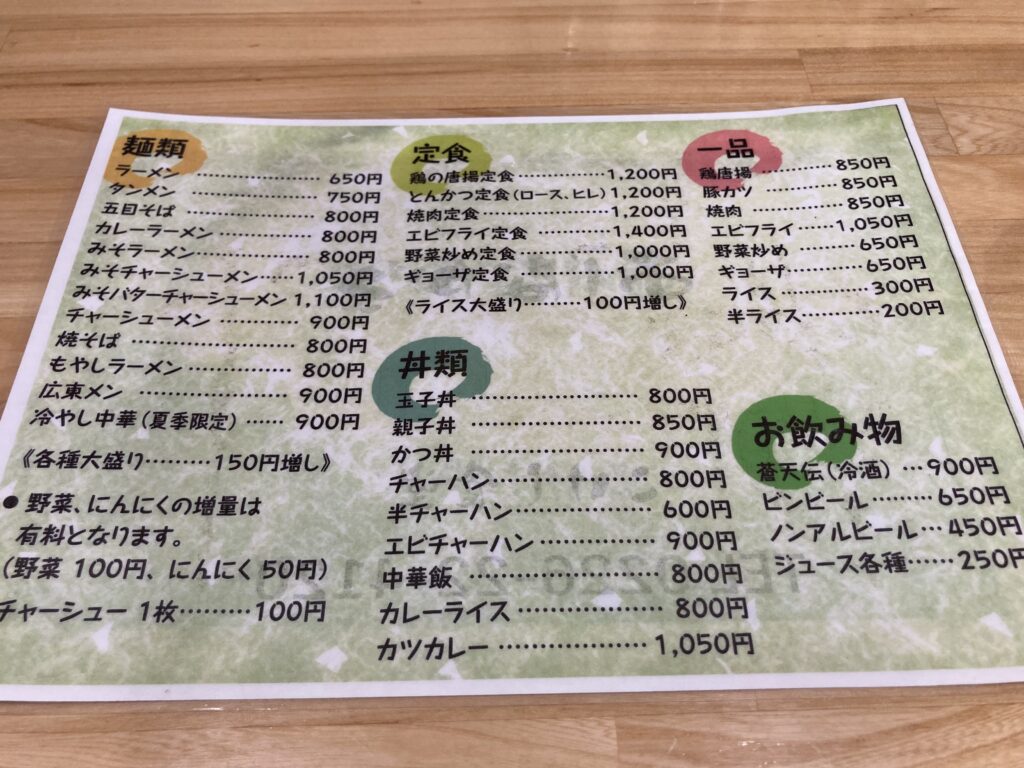 麺類
ラーメン……………………650円
タンメン……………………750円
五目そば……………………800円
カレーラーメン……………800円
みそラーメン………………800円
みそチャーシューメン……1,050円
みそバターチャーシューメン 1,100円
チャーシューメン…………900円
焼そば………………………800円
もやしラーメン……………800円
広東メン……………………900円
冷やし中華（夏季限定）……900円
《各種大盛り………150円増し》
● 野菜、にんにくの増量は
有料となります。
（野菜 100円、にんにく 50円）
チャーシュー 1枚………100円
定食
鶏の唐揚定食……………1,200円
とんかつ定食（ロース、ヒレ）1,200円
焼肉定食…………………1,200円
エビフライ定食…………1,400円
野菜炒め定食……………1,000円
ギョーザ定食……………1,000円
《ライス大盛り………100円増し》
丼類
玉子丼……………………800円
親子丼……………………850円
かつ丼……………………900円
チャーハン………………800円
半チャーハン……………600円
エビチャーハン…………900円
中華飯……………………800円
カレーライス……………800円
カツカレー………………1,050円
一品
鶏唐揚……………850円
豚カツ……………850円
焼肉………………850円
エビフライ………1,050円
野菜炒め…………650円
ギョーザ…………650円
ライス……………300円
半ライス…………200円
お飲み物
蒼天伝（冷酒）…900円
ビンビール………650円
ノンアルビール…450円
ジュース各種……250円